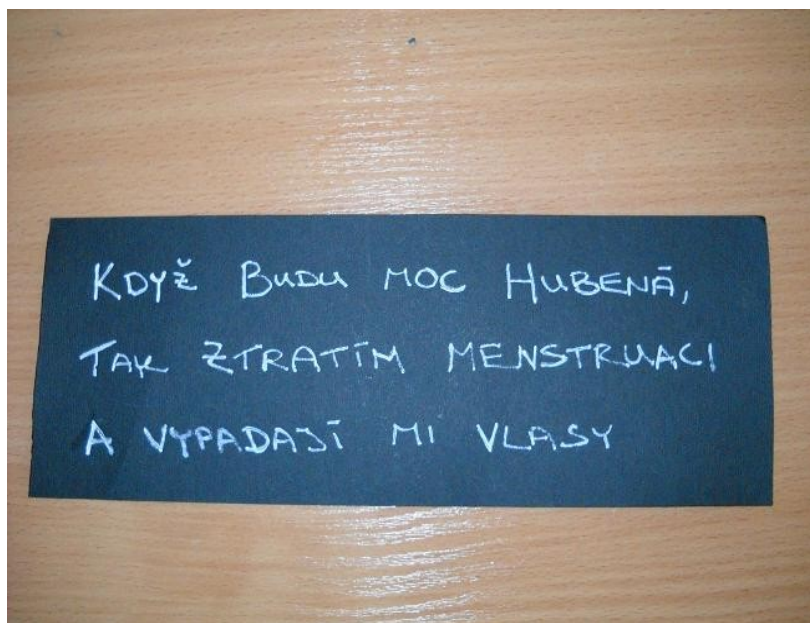 KDYŽ BUDU MOC HUBENÁ,
TAK ZTRATÍM MENSTRUACI
A VYPADAJÍ MI VLASY